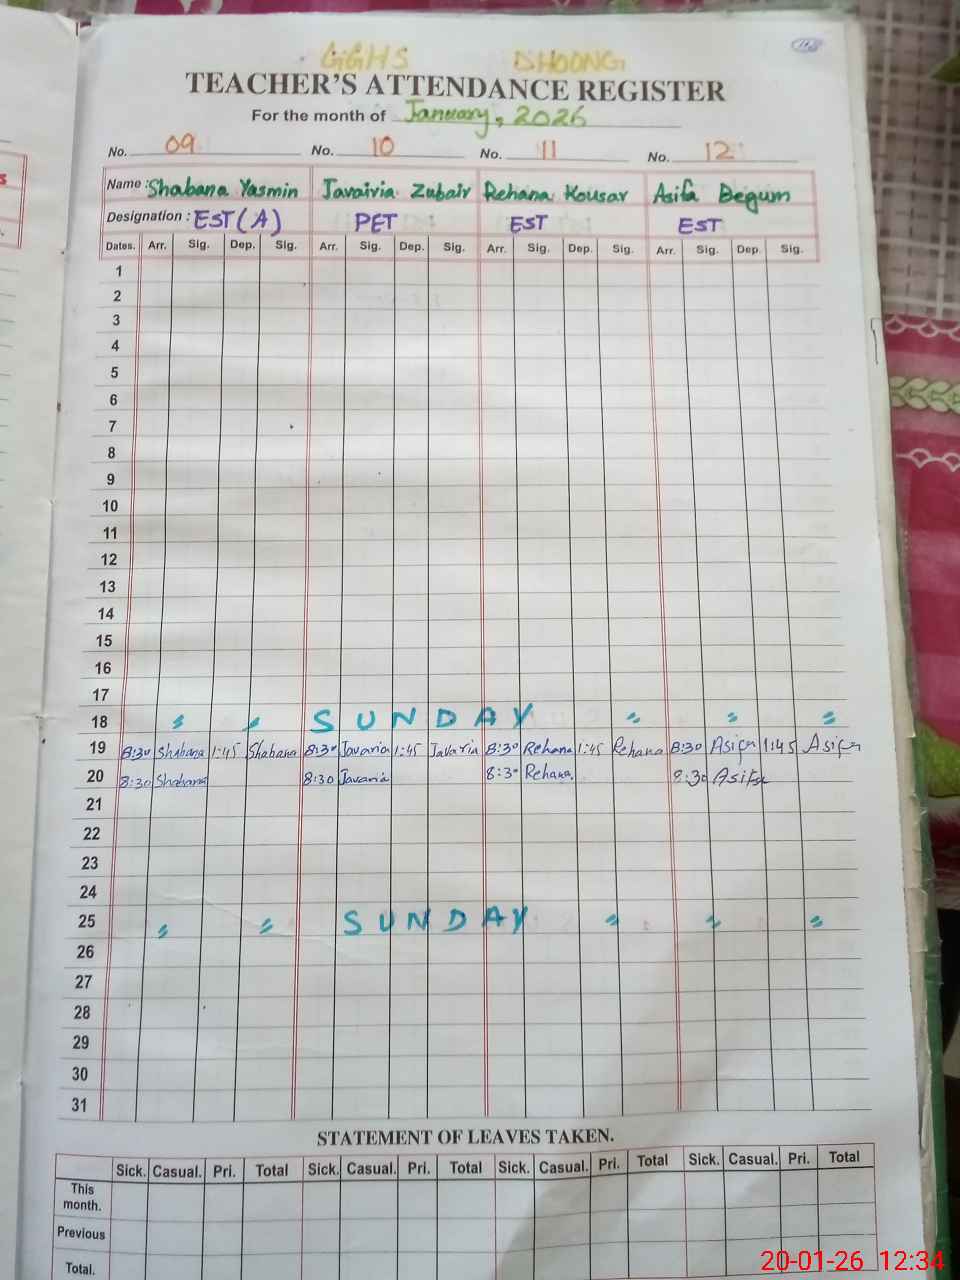 GGHS DHOONG
TEACHER'S ATTENDANCE REGISTER
For the month of January, 2026
No. 09 No. 10 No. 11 No. 12
Name : Shabana Yasmin Javairia Zubair Rehana Kousar Asifa Begum
Designation : EST (A) PET EST EST
Dates. Arr. Sig. Dep. Sig. Arr. Sig. Dep. Sig. Arr. Sig. Dep. Sig. Arr. Sig. Dep. Sig.
1
2
3
4
5
6
7
8
9
10
11
12
13
14
15
16
17
18 " " SUNDAY " " "
19 8:30 Shabana 1:45 Shabana 8:30 Javaria 1:45 Javaria 8:30 Rehana 1:45 Rehana 8:30 Asifa 1:45 Asifa
20 8:30 Shabana 8:30 Javaria 8:30 Rehana 8:30 Asifa
21
22
23
24
25 " " SUNDAY " " "
26
27
28
29
30
31
STATEMENT OF LEAVES TAKEN.
Sick. Casual. Pri. Total Sick. Casual. Pri. Total Sick. Casual. Pri. Total Sick. Casual. Pri. Total
This month.
Previous
Total.
20-01-26 12:34